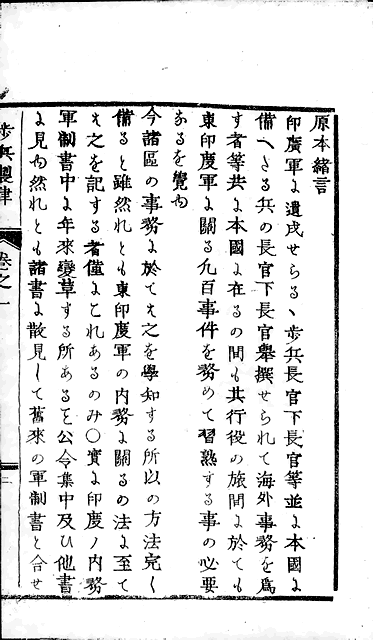 原本緒言
印度軍に遣戍せらるヽ歩兵長官下長官等並に本國に
備へたる兵の長官下長官擧撰せられて海外事務を爲
す者等共に本國に在るの間も其行役の旅間に於ても
東印度軍に關る九百事件を務めて習熟する事の必要
なるを覺ゆ
今諸區の事務に於てハ之を學知する所以の方法完く
備ると雖然れとも東印度軍の内務に關るの法に至て
ハ之を記する者僅にこれあるのみ○實に印度ノ内務
軍制書中に年來變革する所あるを公令集中及ひ他書
に見ゆ然れとも諸書に散見して舊來の軍制書と合せ
歩兵制律 卷之一
二